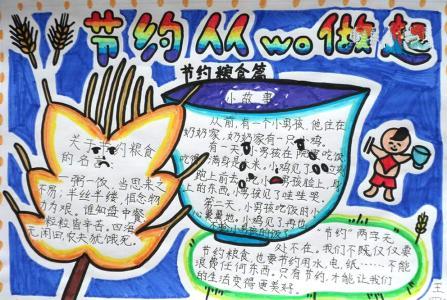 节约从wo做起
节约粮食篇
小故事
从前,有一个小男孩,他住在
奶奶家,奶奶家有一只小鸡。
有一天,小男孩在院吃饭
吃饭满身是米,小鸡见了立
跑上前去吃小男孩脸上,身
上的东西,小男孩见了哇哇哭。
第二天,小男孩吃饭的小
关于节约粮食
的名言
一粥一饭,当思来之
不易;半丝半缕,恒念物
力为艰。谁知盘中餐,
粒粒皆辛苦。四海
无闲田,农夫犹饿死。
节约"两字无
处不在。我们不仅仅要
节约粮食,也要节约用水,电,纸……不能
浪费任何东西。只有节约,才能让我们
的生活变得更美好。